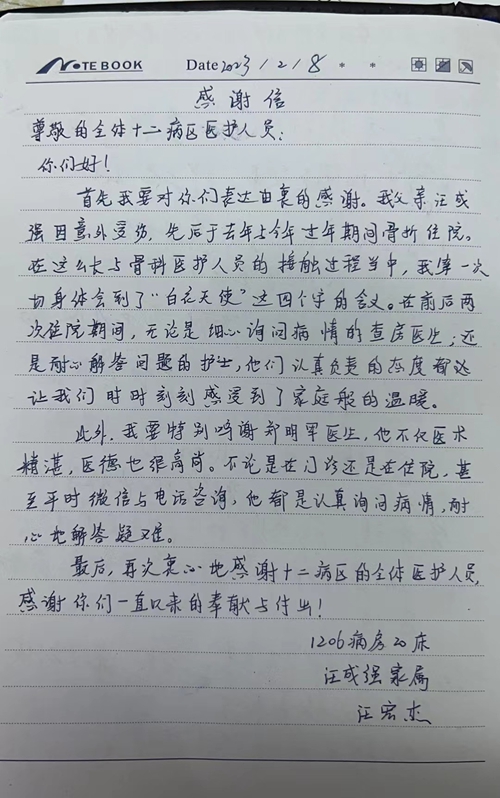 NOTEBOOK Date 2023/2/8
感谢信
尊敬的全体十二病区医护人员:
你们好!
首先我要对你们表达由衷的感谢。我父亲汪成
强因意外受伤,先后于去年与今年过年期间骨折住院。
在这么长与骨科医护人员的接触过程当中,我第一次
切身体会到了“白衣天使”这四个字的含义。在前后两
次住院期间,无论是细心询问病情的查房医生;还
是耐心解答问题的护士,他们认真负责的态度都
让我们时时刻刻感受到了家庭般的温暖。
此外,我要特别鸣谢郑明军医生,他不仅医术
精湛,医德也很高尚。不论是在门诊还是在住院,甚
至平时微信与电话咨询,他都是认真询问病情,耐
心地解答疑难。
最后,再次衷心地感谢十二病区的全体医护人员,
感谢你们一直以来的奉献与付出!
1206病房20床
汪成强家属
汪宏杰